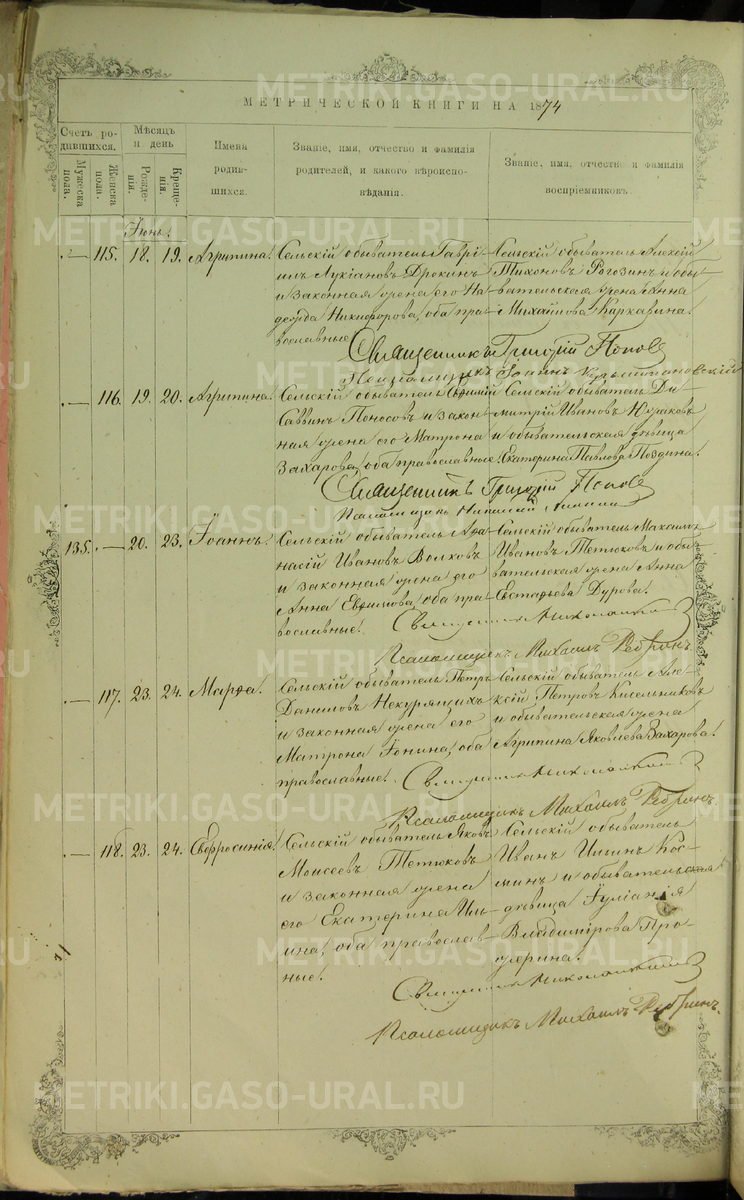 МЕТРИЧЕСКОЙ КНИГИ НА 1874
Счетъ родившихся.
Мужеска пола.
Женска пола.
Мѣсяцъ и день
Рожденія.
Крещенія.
Имена родившихся.
Званіе, имя, отчество и фамилія родителей, и какого вѣроисповѣданія.
Званіе, имя, отчество и фамилія воспріемниковъ.
Іюнь.
— 115. 18. 19. Агрипина.
Сельскій обыватель Гаврі-
илъ Лукіановъ Дрокинъ
и законная жена его На-
дежда Никифорова, оба пра-
вославные
Сельскій обыватель Алексій
Тихоновъ Рогозинъ и обы-
вательская жена Анна
Михайлова Каркавина.
Священникъ Григорій Поповъ
Псаломщикъ Іоаннъ
— 116. 19. 20. Агрипина.
Сельскій обыватель
Саввинъ Поносовъ и закон-
ная жена его Матрона
Захарова, оба православные.
Сельскій обыватель Ди-
митрій Ивановъ
и обывательская дѣвица
Екатерина Павлова Поздина.
Священникъ Григорій Поповъ
Псаломщикъ
135. — 20. 23. Іоаннъ.
Сельскій обыватель Афа-
насій Ивановъ Волковъ
и законная жена его
Анна Евфимова, оба пра-
вославные.
Сельскій обыватель Максимъ
Ивановъ Тетюковъ и обы-
вательская жена Анна
Евстафьева Дурова.
Священникъ
Псаломщикъ Михаилъ Ребринъ.
— 117. 23. 24. Марфа.
Сельскій обыватель Петръ
Даниловъ Некурящихъ
и законная жена его
Матрона Іонина, оба
православные.
Сельскій обыватель Але-
ксій Петровъ Кисельниковъ
и обывательская жена
Агрипина Яковлева Захарова.
Священникъ
Псаломщикъ Михаилъ Ребринъ.
— 118. 23. 24. Евфросинія.
Сельскій обыватель Яковъ
Моисеевъ Тетюковъ
и законная жена
его Екатерина Иль-
ина, оба православ-
ные.
Сельскій обыватель
Иванъ Ильинъ Кос-
минъ и обывательская
дѣвица Іуліанія
Владимірова Про-
жерина.
Священникъ
Псаломщикъ Михаилъ Ребринъ.
METRIKI.GASO-URAL.RU